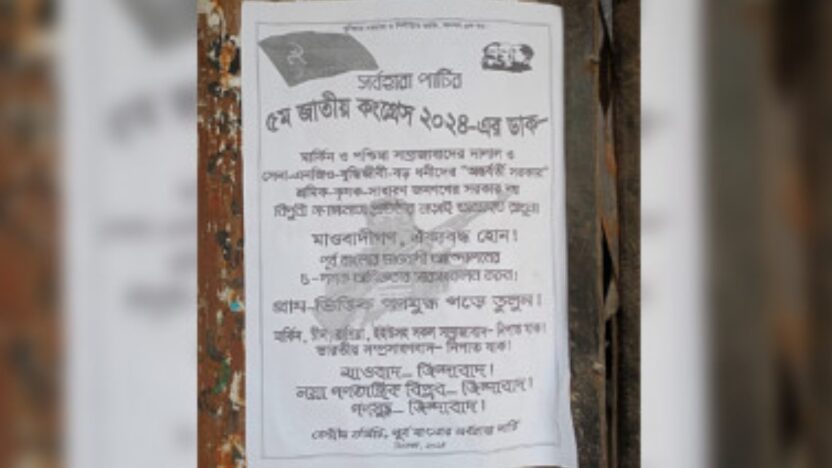 সর্বহারা পার্টির
৫ম জাতীয় কংগ্রেস ২০২৪-এর ডাক
মার্কিন ও পশ্চিমা সাম্রাজ্যবাদের দালাল ও
সেনা-এনজিও-বুদ্ধিজীবী-বড় ধনীদের "অন্তর্বর্তী সরকার"
শ্রমিক-কৃষক-সাধারণ জনগণের সরকার নয়
বিপ্লবী
মাওবাদীগণ, ঐক্যবদ্ধ হোন!
পূর্ব বাংলার মাওবাদী আন্দোলনের
৫-দশক অভিজ্ঞতার সারসংকলন করুন!
গ্রাম-ভিত্তিক গণযুদ্ধ গড়ে তুলুন!
মার্কিন, চীন, রাশিয়া, ইইউসহ সকল সাম্রাজ্যবাদ– নিপাত যাক!
ভারতীয় সম্প্রসারণবাদ– নিপাত যাক!
মাওবাদ– জিন্দাবাদ!
নয়া গণতান্ত্রিক বিপ্লব– জিন্দাবাদ!
গণযুদ্ধ– জিন্দাবাদ!
কেন্দ্রীয় কমিটি, পূর্ব বাংলার সর্বহারা পার্টি